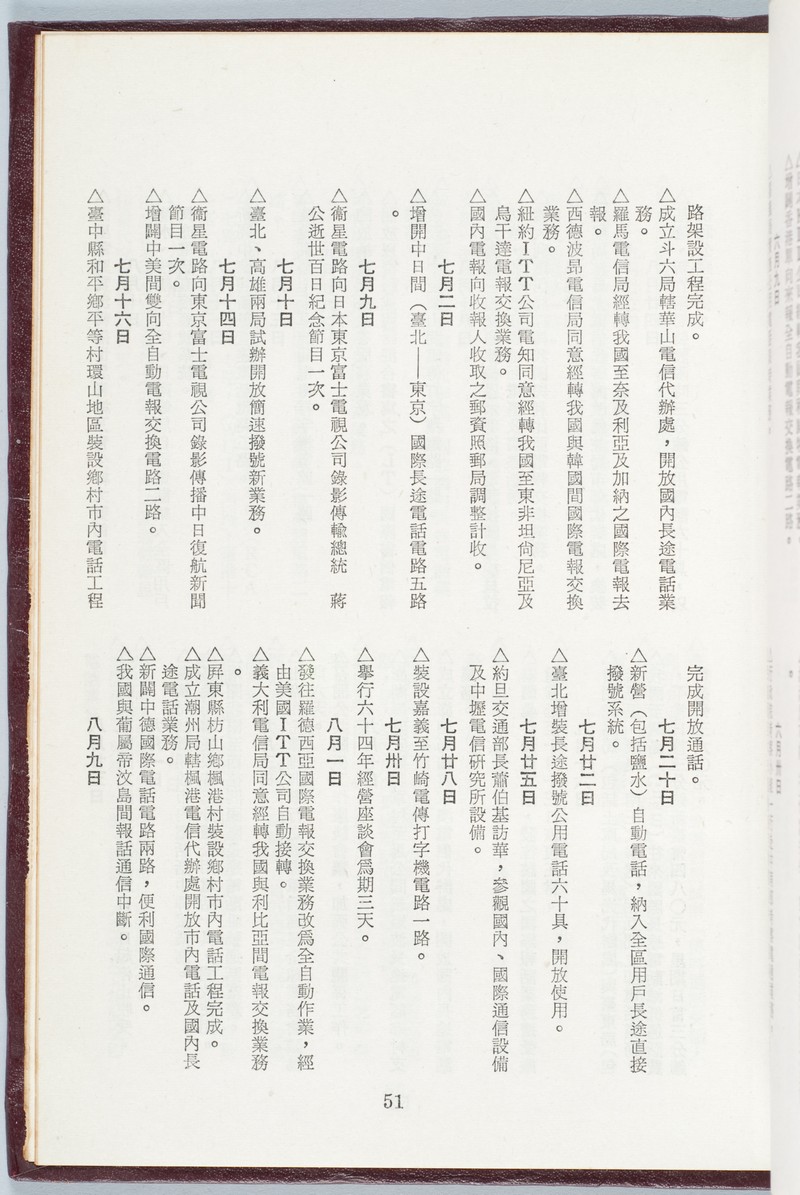 路架設工程完成。
△成立斗六局轄華山電信代辦處，開放國內長途電話業
務。
△羅馬電信局經轉我國至奈及利亞及加納之國際電報去
報。
△西德波昻電信局同意經轉我國與韓國間國際電報交換
業務。
△紐約ＩＴＴ公司電知同意經轉我國至東非坦尙尼亞及
烏干達電報交換業務。
△國內電報向收報人收取之郵資照郵局調整計收。
七月二日
△增開中日間（臺北——東京）國際長途電話電路五路
。
七月九日
△衞星電路向日本東京富士電視公司錄影傳輸總統　蔣
公逝世百日紀念節目一次。
七月十日
△臺北、高雄兩局試辦開放簡速撥號新業務。
七月十四日
△衞星電路向東京富士電視公司錄影傳播中日復航新聞
節目一次。
△增闢中美間雙向全自動電報交換電路二路。
七月十六日
△臺中縣和平鄕平等村環山地區裝設鄕村市內電話工程
完成開放通話。
七月二十日
△新營（包括鹽水）自動電話，納入全區用戶長途直接
撥號系統。
七月廿二日
△臺北增裝長途撥號公用電話六十具，開放使用。
七月廿五日
△約旦交通部長蕭伯基訪華，參觀國內、國際通信設備
及中壢電信研究所設備。
七月廿八日
△裝設嘉義至竹崎電傳打字機電路一路。
七月卅日
△擧行六十四年經營座談會爲期三天。
八月一日
△發往羅德西亞國際電報交換業務改爲全自動作業，經
由美國ＩＴＴ公司自動接轉。
△義大利電信局同意經轉我國與利比亞間電報交換業務
。
△屏東縣枋山鄕楓港村裝設鄕村市內電話工程完成。
△成立潮州局轄楓港電信代辦處開放市內電話及國內長
途電話業務。
△新闢中德國際電話電路兩路，便利國際通信。
△我國與葡屬帝汶島間報話通信中斷。
八月九日
51